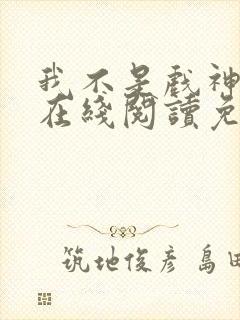 我不是戲神
在綫閱讀免
筑地俊彦 島田